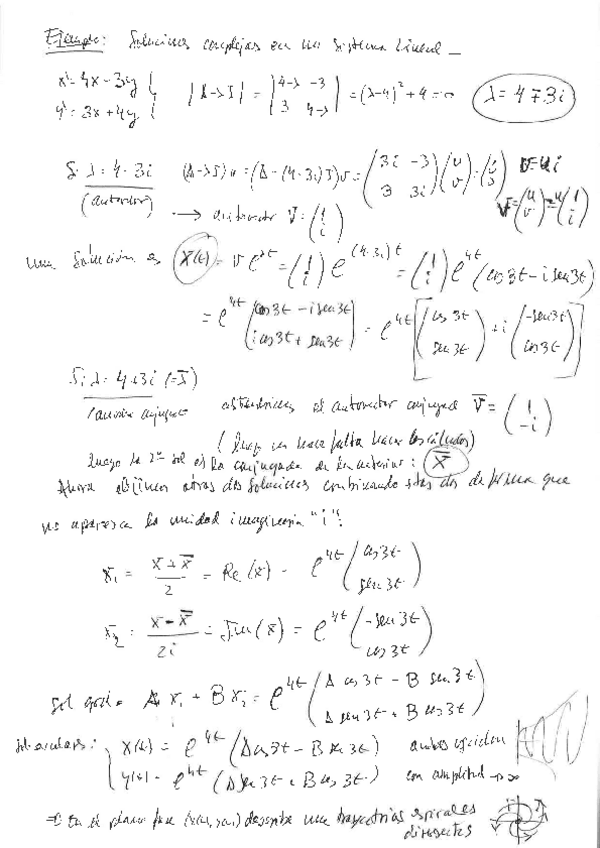 Ejemplo: Soluciones complejas en un Sistema Lineal
x' = 4x - 3y
y' = 3x + 4y } |A-λI| = |4-λ -3; 3 4-λ| = (λ-4)² + 4 = 0 λ = 4 ∓ 3i
Si λ = 4 - 3i (A-λI)v = (A-(4-3i)I)v = (3i -3; 3 3i)(u; v) = v = ui
(autovalor) → autovector v = (1; i) v = (u; v) = u(1; i)
una solución es x(t) = v e = (1; i) e^{(4-3i)t} = (1; i) e^{4t} (cos3t - i sen3t)
= e^{4t} (cos3t - i sen3t; i cos3t + sen3t) = e^{4t} [(cos 3t; sen 3t) + i (-sen3t; cos3t)]
Si λ = 4+3i
obtendríamos el autovector conjugado v̄ = (1; -i)
(luego no hace falta hacer los cálculos)
luego la 2ª sol es la conjugada de la anterior: x̄
Ahora obtenemos otras dos soluciones combinando estas dos de forma que
no aparezca la unidad imaginaria "i":
x₁ = (x + x̄)/2 = Re(x) = e^{4t} (cos3t; sen3t)
x₂ = (x - x̄)/2i = Im(x) = e^{4t} (-sen 3t; cos 3t)
Sol gral = A x₁ + B x₂ = e^{4t} (A cos 3t - B sen 3t; A sen 3t + B cos 3t)
x(t) = e^{4t} (A cos 3t - B sen 3t) ambas oscilan
y(t) = e^{4t} (A sen 3t + B cos 3t) con amplitud → ∞
⇒ En el plano fase (x(t), y(t)) describe una trayectorias espirales